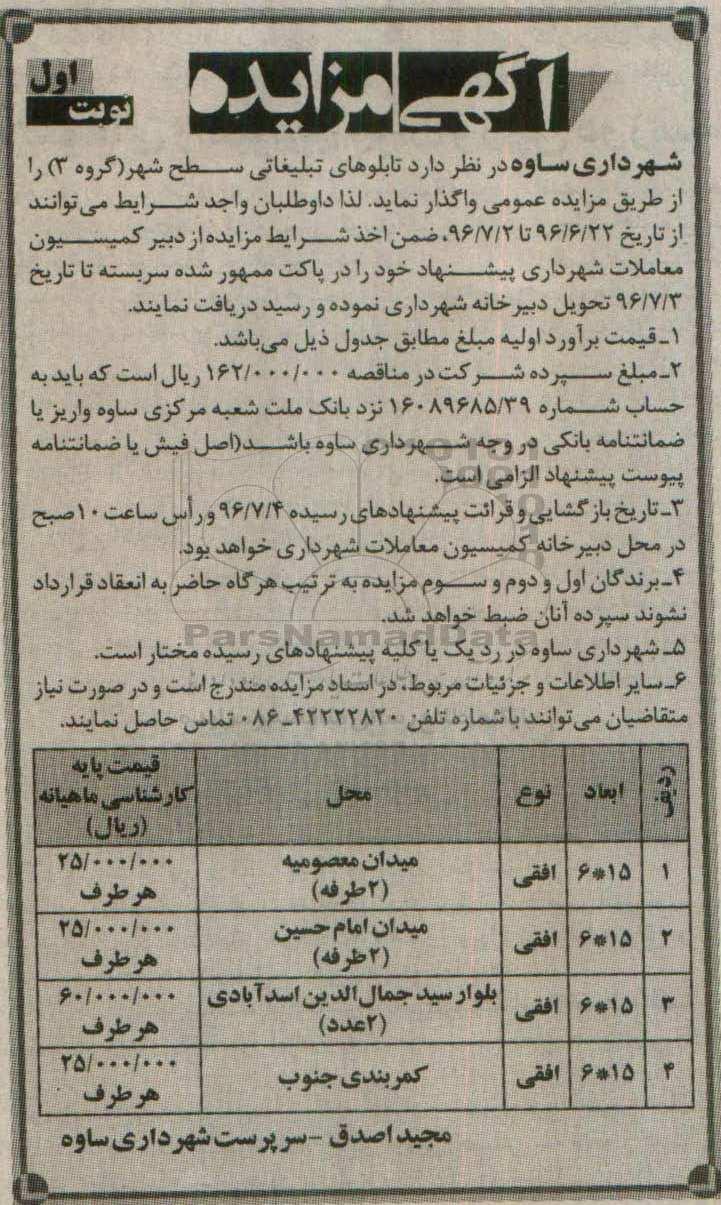 آگهی مزایده
نوبت اول
شهرداری ساوه در نظر دارد تابلوهای تبلیغاتی سطح شهر(گروه ۳) را
از طریق مزایده عمومی واگذار نماید. لذا داوطلبان واجد شرایط می‌توانند
از تاریخ ۹۶/۶/۲۲ تا ۹۶/۷/۲، ضمن اخذ شرایط مزایده از دبیر کمیسیون
معاملات شهرداری پیشنهاد خود را در پاکت ممهور شده سربسته تا تاریخ
۹۶/۷/۳ تحویل دبیرخانه شهرداری نموده و رسید دریافت نمایند.
۱ـ قیمت برآورد اولیه مبلغ مطابق جدول ذیل می‌باشد.
۲ـ مبلغ سپرده شرکت در مناقصه ۱۶۲/۰۰۰/۰۰۰ ریال است که باید به
حساب شماره ۱۶۰۸۹۶۸۵/۳۹ نزد بانک ملت شعبه مرکزی ساوه واریز یا
ضمانتنامه بانکی در وجه شهرداری ساوه باشد(اصل فیش یا ضمانتنامه
پیوست پیشنهاد الزامی است.
۳ـ تاریخ بازگشایی و قرائت پیشنهادهای رسیده ۹۶/۷/۴ و رأس ساعت ۱۰ صبح
در محل دبیرخانه کمیسیون معاملات شهرداری خواهد بود.
۴ـ برندگان اول و دوم و سوم مزایده به ترتیب هرگاه حاضر به انعقاد قرارداد
نشوند سپرده آنان ضبط خواهد شد.
ParsNamadData
۵ـ شهرداری ساوه در رد یک یا کلیه پیشنهادهای رسیده مختار است.
۶ـ سایر اطلاعات و جزئیات مربوط، در اسناد مزایده مندرج است و در صورت نیاز
متقاضیان می‌توانند با شماره تلفن ۴۲۲۲۲۸۲۰ـ۰۸۶ تماس حاصل نمایند.
ردیف ابعاد نوع محل قیمت پایه کارشناسی ماهیانه (ریال)
۱ ۱۵*۶ افقی میدان معصومیه (۲طرفه) ۲۵/۰۰۰/۰۰۰ هر طرف
۲ ۱۵*۶ افقی میدان امام حسین (۲طرفه) ۲۵/۰۰۰/۰۰۰ هر طرف
۳ ۱۵*۶ افقی بلوار سید جمال الدین اسدآبادی (۲عدد) ۶۰/۰۰۰/۰۰۰ هر طرف
۴ ۱۵*۶ افقی کمربندی جنوب ۲۵/۰۰۰/۰۰۰ هر طرف
مجید اصدق - سرپرست شهرداری ساوه